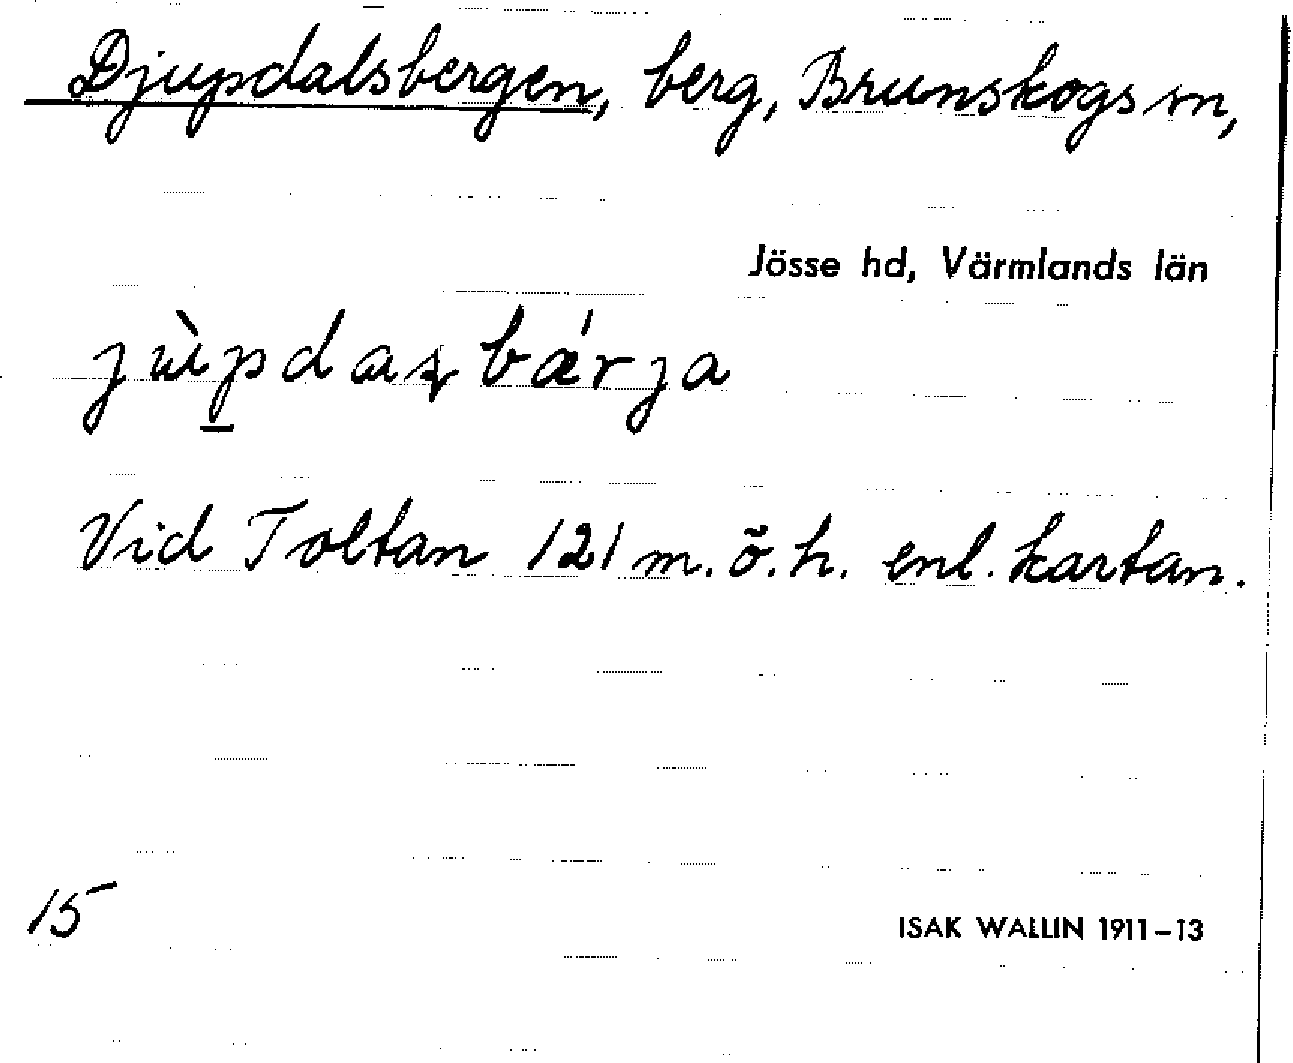 Djupdalsbergen, berg, Brunskogs sn,
Jösse hd, Värmlands län
Vid Toltan 121 m. ö. h. enl. kartan.
15
ISAK WALLIN 1911–13